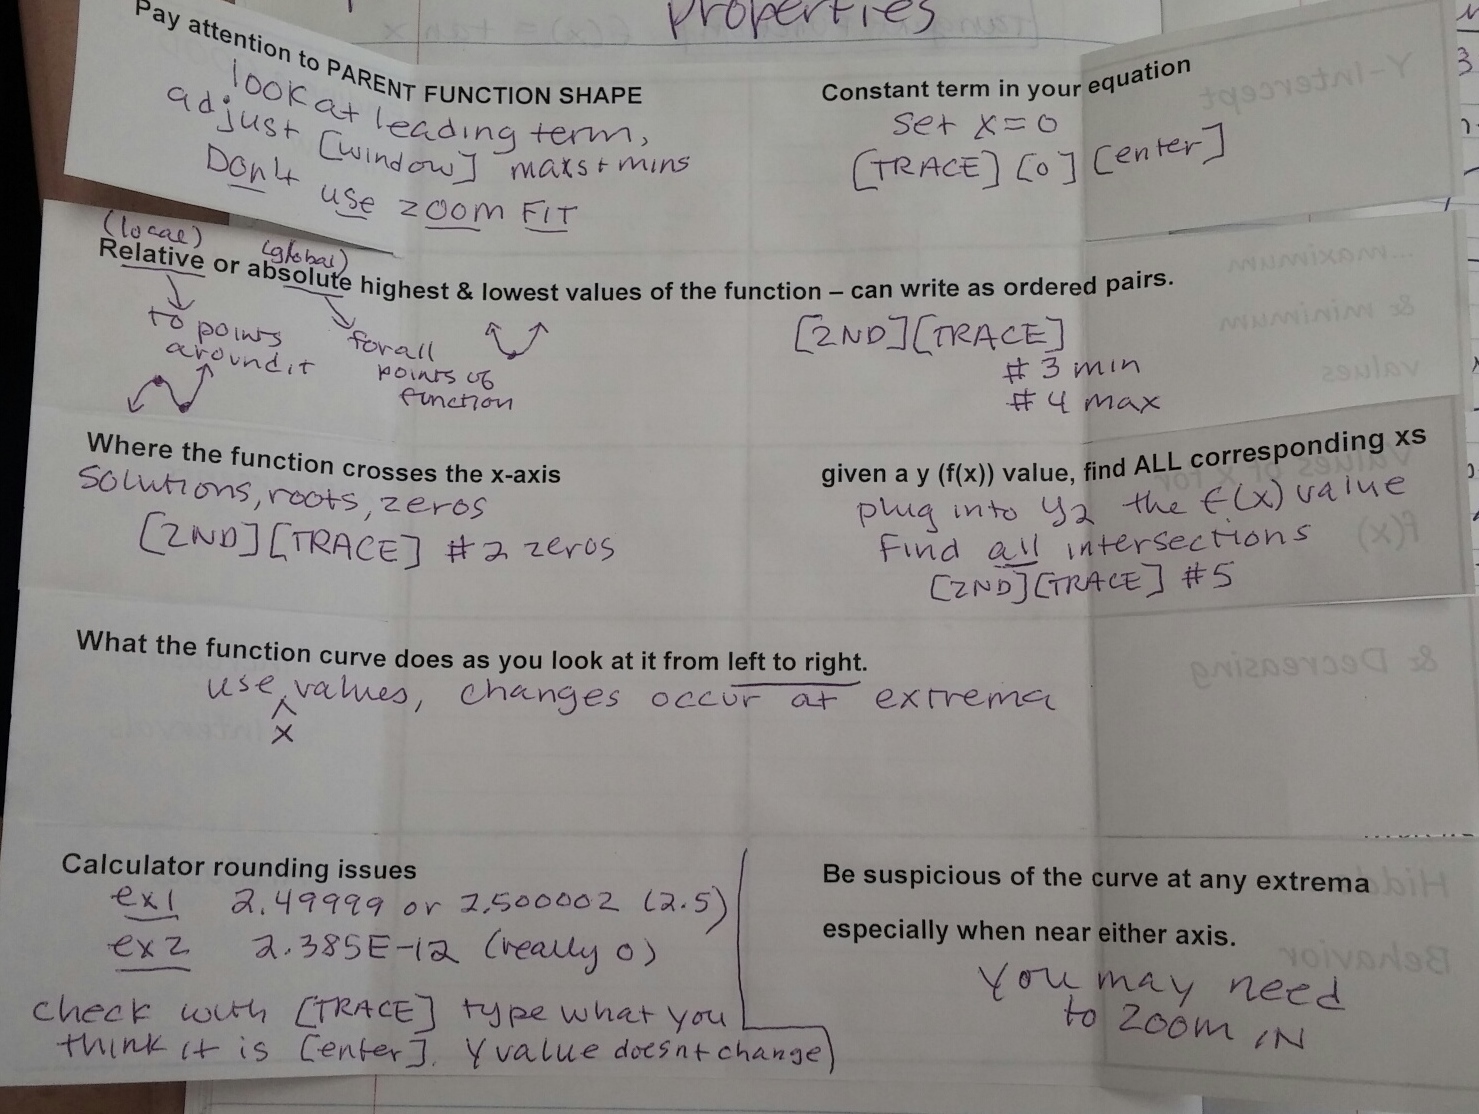 properties
Pay attention to PARENT FUNCTION SHAPE
look at leading term,
adjust [window] maxs + mins
Don't use zoom FIT
Constant term in your equation
set x=0
[TRACE] [0] [enter]
Y-Intercept
(local) (global)
Relative or absolute highest & lowest values of the function – can write as ordered pairs.
to points
around it
for all
points of
function
[2ND][TRACE]
# 3 min
# 4 max
...maximum
& minimum
values
Where the function crosses the x-axis
solutions, roots, zeros
[2ND][TRACE] #2 zeros
given a y (f(x)) value, find ALL corresponding xs
plug into y2 the f(x) value
Find all intersections
[2ND][TRACE] #5
Values of x for
f(x)
What the function curve does as you look at it from left to right.
use x values, changes occur at extrema
& Decreasing
Intervals
Calculator rounding issues
ex1 2.49999 or 2.500002 (2.5)
ex2 2.385E-12 (really 0)
check with [TRACE] type what you
think it is [enter]. Y value doesnt change
Be suspicious of the curve at any extrema
especially when near either axis.
You may need
to zoom IN
Behavior